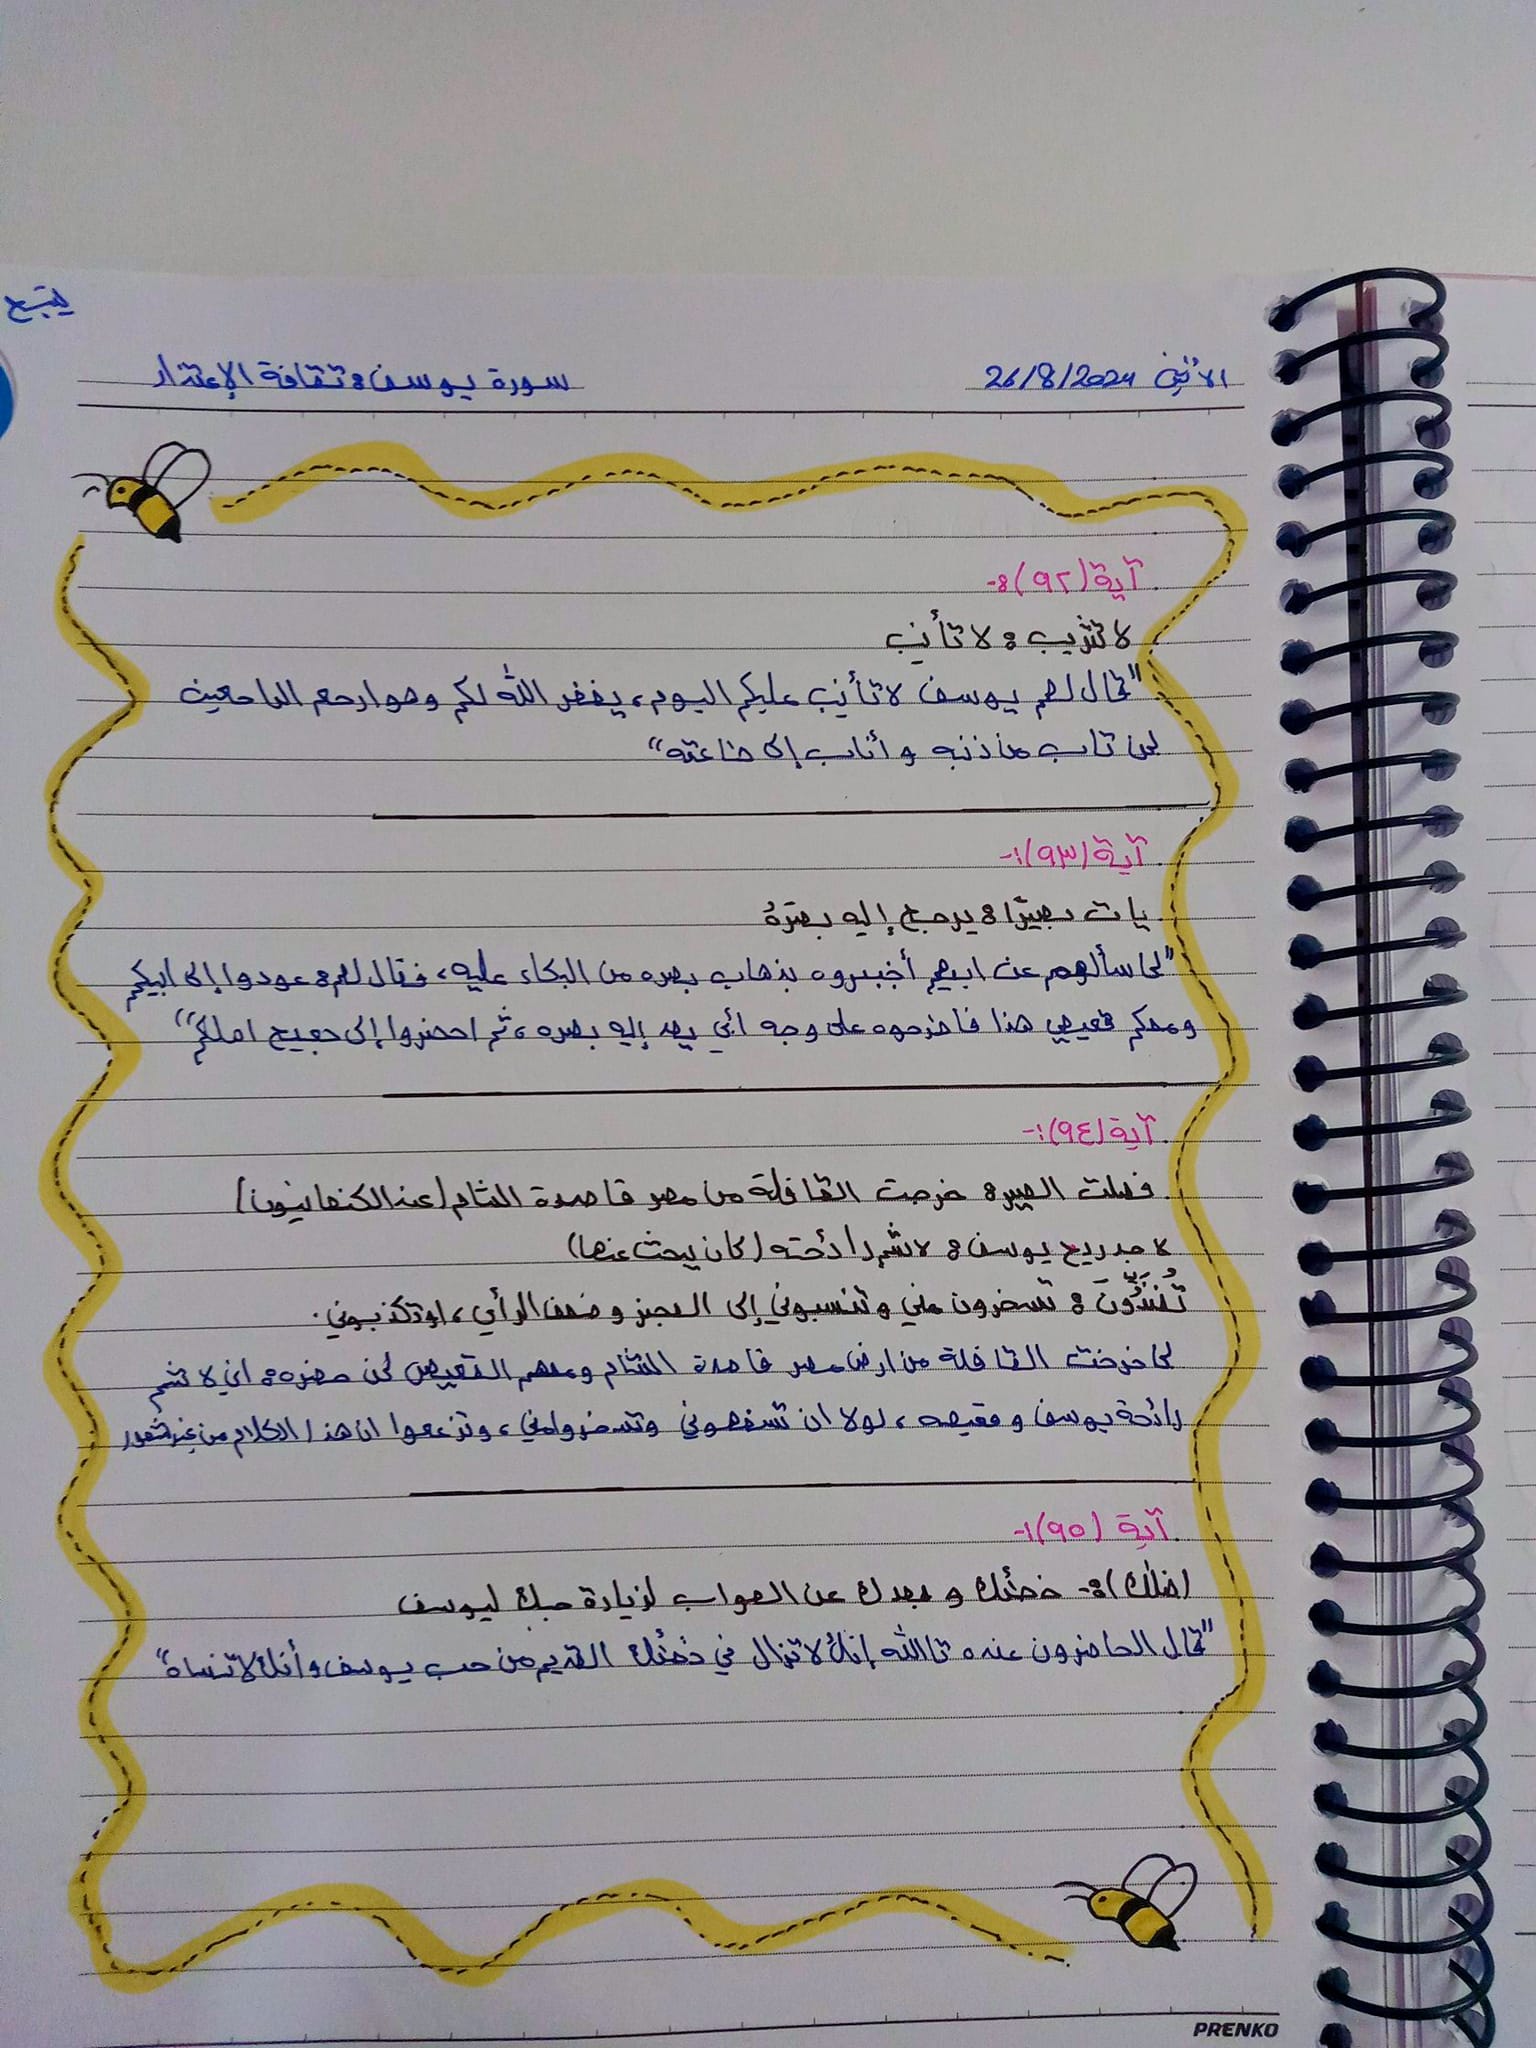 يتبع
الاثنين 26/8/2024
سورة يوسف: ثقافة الإعتذار
آية (٩٢):-
لا تثريب: لا تأنيب
"قال لهم يوسف لا تأنيب عليكم اليوم، يغفر الله لكم وهو ارحم الراحمين
لمن تاب من ذنبه وأناب إلى طاعته"
آية (٩٣):-
يات بصيرًا: يرجع إليه بصرهُ
"لما سألهم عن ابيهم أخبروه بذهاب بصره من البكاء عليه، فقال لهم: عودوا إلى ابيكم
ومعكم قميصي هذا فاطرحوه على وجه أبي يعد إليه بصره، ثم احضروا إلى جميع اهلكم"
آية (٩٤):-
فصلت العير: خرجت القافلة من مصر قاصدة الشام (عند الكنعانيون)
لاجد ريح يوسف: لاشم رائحته (كان يبحث عنها)
تُفَنِّدُونَ: تسخرون مني وتنسبوني إلى العجز وضعف الرأي، او تكذبوني.
لما خرجت القافلة من ارض مصر قاصدة الشام ومعهم القميص لمن حضره: اني لاشم
رائحة يوسف وقميصه، لولا ان تسفهوني وتسخروا مني، وتزعموا ان هذا الكلام من غير شعور
آية (٩٥):-
(ضللك):- خطئك وبعدك عن الصواب لزيادة حبك ليوسف
"قال الحاضرون عنده تاالله إنك لا تزال في خطئك القديم من حب يوسف وأنك لا تنساه"
PRENKO